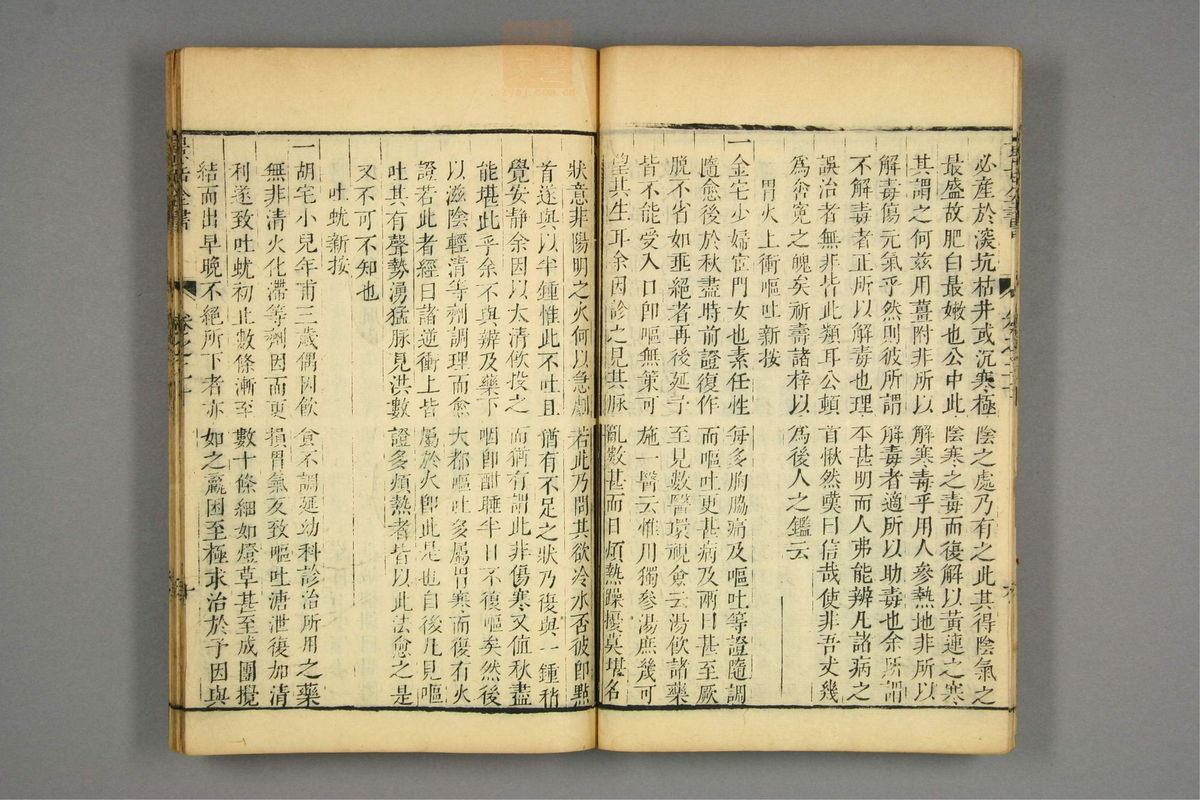 必産於深坑枯井或沉寒極陰之處乃有之此其得陰氣之
最盛故肥白最嫩也公中此陰寒之毒而復解以黃連之寒
其謂之何兹用薑附非所以解寒毒乎用人參熟地非所以
解毒傷元氣乎然則彼所謂解毒者適所以助毒也余所謂
不解毒者正所以解毒也理本甚明而人弗能辨凡諸病之
誤治者無非皆此類耳公頓首愀然嘆曰信哉使非吾丈幾
爲含寃之魄矣祈壽諸梓以爲後人之鑑云
胃火上衝嘔吐新按
一金宅少婦宦門女也素任性每多胸脇痛及嘔吐等證隨調
隨愈後於秋盡時前證復作而嘔吐更甚病及兩日甚至厥
脫不省如垂絕者再後延予至見數醫環視僉云湯飲諸藥
皆不能受入口即嘔無策可施一醫云惟用獨參湯庶幾可
望其生耳余因診之見其脉亂數甚而且煩熱躁擾莫堪名
狀意非陽明之火何以急劇若此乃問其欲冷水否彼即點
首遂與以半鍾惟此不吐且猶有不足之狀乃復與一鍾稍
覺安静余因以太清飲投之而猶有謂此非傷寒又值秋盡
能堪此乎余不與辨及藥下咽即酣睡半日不復嘔矣然後
以滋陰輕清等劑調理而愈大都嘔吐多屬胃寒而復有火
證若此者經曰諸逆衝上皆屬於火即此是也自後凡見嘔
吐其有聲勢湧猛脉見洪數證多煩熱者皆以此法愈之是
又不可不知也
吐蚘新按
一胡宅小兒年甫三歲偶因飲食不調延幼科診治所用之藥
無非清火化滯等劑因而更損胃氣反致嘔吐溏泄復加清
利遂致吐蚘初止數條漸至數十條細如燈草甚至成團攪
結而出早晚不絕所下者亦如之羸困至極求治於予因與